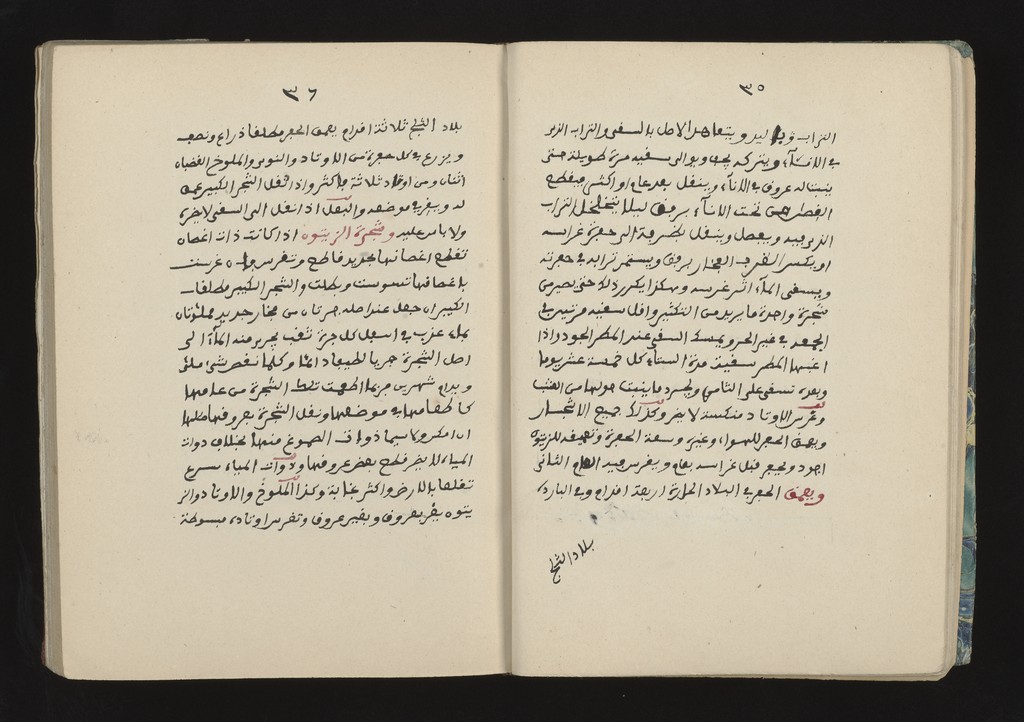 ٣٥
التراب وباليد ويتعاهد الاصل بالسقى والتراب الذى
فى الاناء ويتركه يجف ويوالى سقيه مرة طويلة حتى
ينبت له عروق فى الاناء وينقل بعد عام او اكثر فيقطع
من تحت الاناء برفق ليلا يتخلخل التراب
الذى فيه وينقل الى حفرة غراسه
او يكسر الفخار برفق ويستمر ترابه فى حفرته
ويسقى الماء اثر غرسه وهكذا يكرر ذلك حتى يصير من
شجرة واحدة ما يريد من التكثير واقل سقيه مرتين فى
الجمعه فى غير الحر ويمسك السقى عند المطر الجود واذا
اغبها المطر سقيت مدة الستاء كل خمسة عشر يوما
وبعده تسقى على الثامن ويجرد ما ينبت حولها من العشب
وغرس الاوتاد منكسة لا يضر وكذلك جميع الاشجار
ويعمق الحفر للهواء وغيره وسعة الحفرة وتعميقه للزيتون
اجود ويحفر قبل غراسه بعام ويغرس فيه العام الثانى
ويعمق الحفر فى البلاد الحارة اربعة اقدام وفى الباردة
بلاد الثلج
٣٦
بلاد الثلج ثلاثة اقدام يعمق الحفر مطلقا ذراع ونصف
ويزرع فى كل حفرة من الاوتاد والنوى والملوخ القضبان
اثنان ومن اوتاد ثلاثة فاكثر واذا نقل الشجر الكبير عمق
له ويقر فى موضعه والبقل اذا نقل الى السقى لا يضره
ولا باس عليه وشجرة الزيتون اذا كانت ذات اغصان
تقطع اغصانها بحديد قاطع وتغرس وان غرست
باغصانها تسوست وبطلت والشجر الكبير مطلقا
الكبير ان جعل عند اصله جرتان من فخار جديد مملوتان
بماء عذب فى اسفل كل جرة ثقب يجرى منه الماء الى
اصل الشجرة جريا لطيفا دائما وكلما نقص شئ ملئ
ويدام شهرين فربما اطعمت تلك الشجرة من عامها
كاطعامها فى موضعها ونقل الشجرة بعروقها كلها
ان امكن ولا سيما ذوات الصموغ منها بخلاف ذوات
المياه لا يضر قطع بعض عروقها وذوات المياه يسرع
تعلقها بالارض واكثر غابة وكذا الملوخ والاوتاد والز
يتون يضر بعروق وبغير عروق وتغرس اوتاده مبسوطة